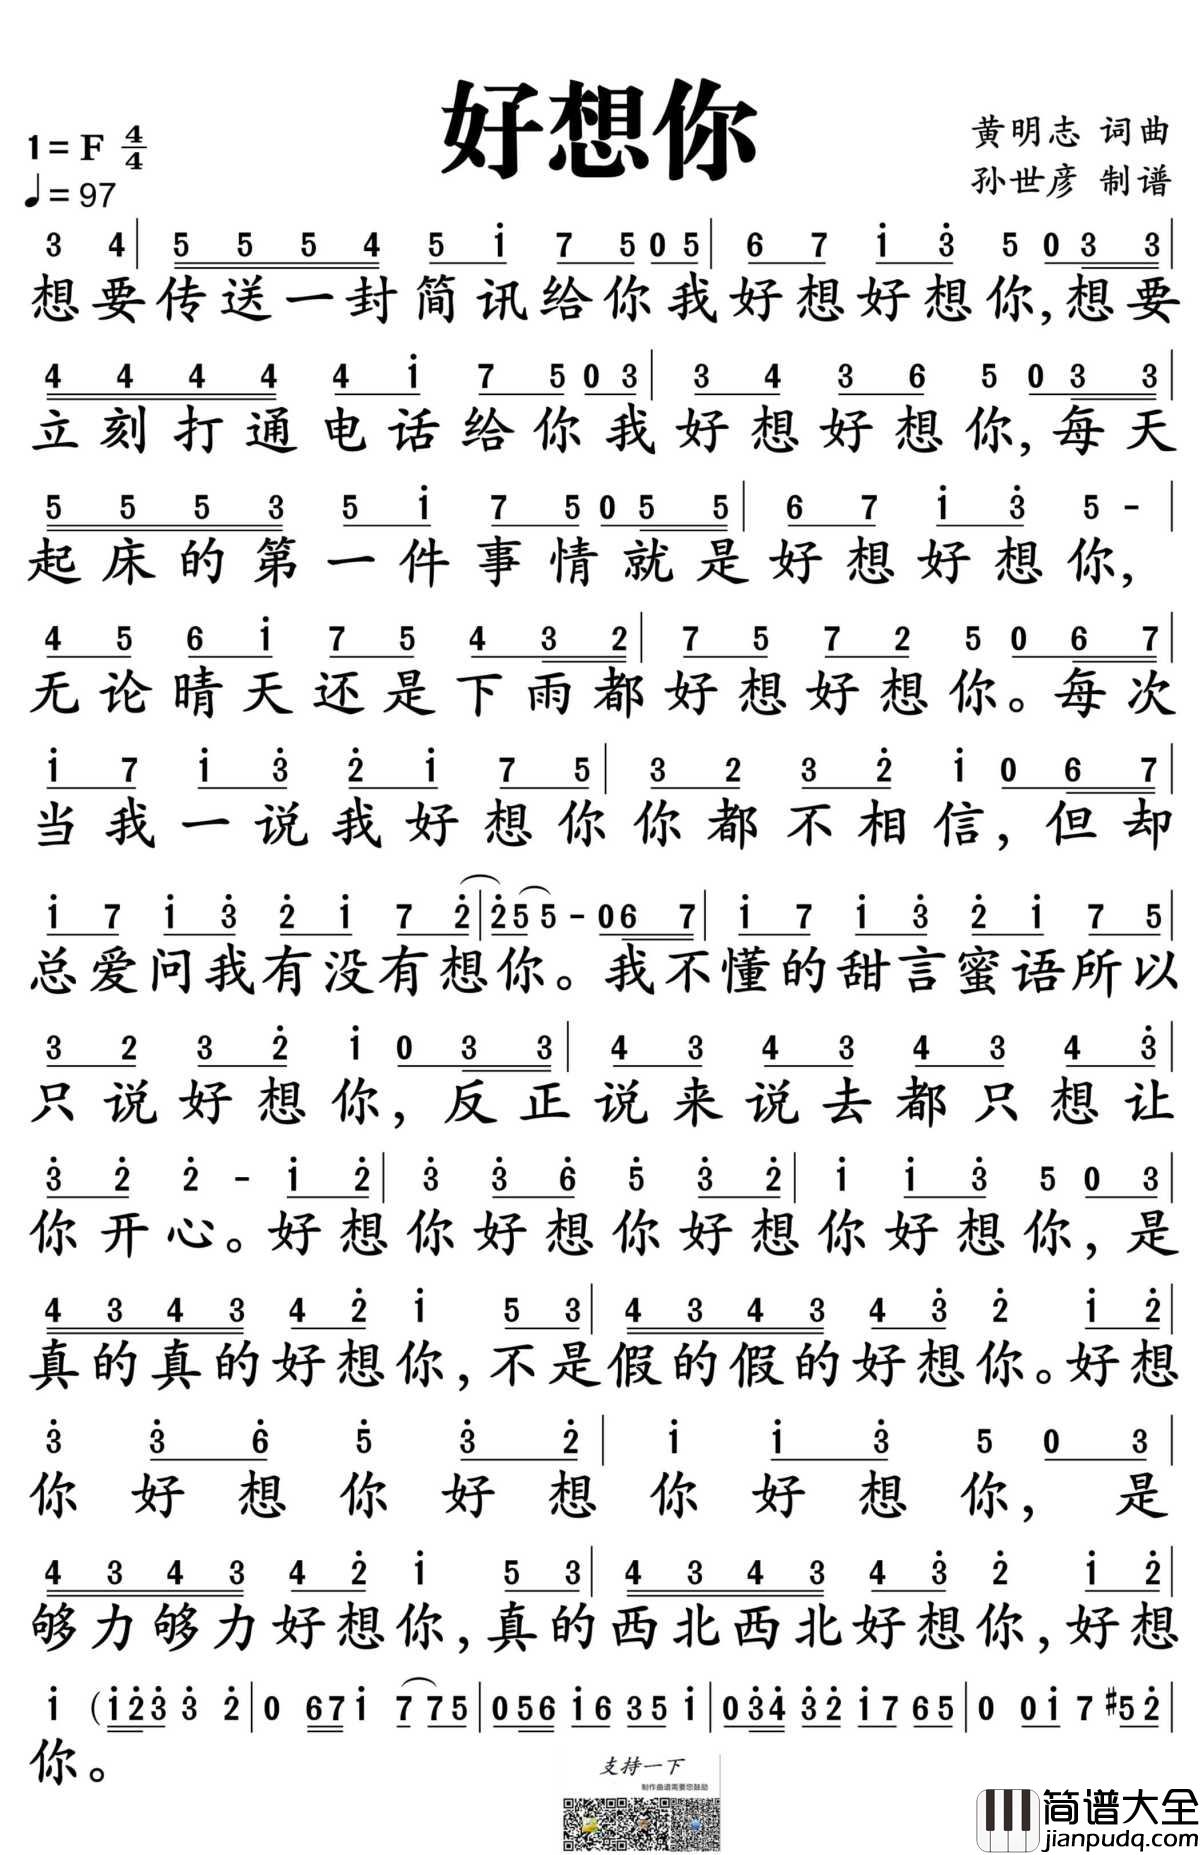 好想你
1=F 4/4
♩=97
黄明志 词曲
孙世彦 制谱
3 4 | 5 5 5 4 5 i 7 5 0 5 | 6 7 i 3̇ 5 0 3 3 |
想要传送一封简讯给你我好想好想你,想要
4 4 4 4 4 i 7 5 0 3 | 3 4 3 6 5 0 3 3 |
立刻打通电话给你我好想好想你,每天
5 5 5 3 5 i 7 5 0 5 5 | 6 7 i 3̇ 5 - |
起床的第一件事情就是好想好想你,
4 5 6 i 7 5 4 3 2 | 7 5 7 2 5 0 6 7 |
无论晴天还是下雨都好想好想你。每次
i 7 i 3̇ 2̇ i 7 5 | 3 2 3 2̇ i 0 6 7 |
当我一说我好想你你都不相信,但却
i 7 i 3̇ 2̇ i 7 2̇ | 2̇ 5 5 - 0 6 7 | i 7 i 3̇ 2̇ i 7 5 |
总爱问我有没有想你。我不懂的甜言蜜语所以
3 2 3 2̇ i 0 3 3 | 4 3 4 3 4 3 4 3̇ |
只说好想你,反正说来说去都只想让
3̇ 2̇ 2̇ - i 2̇ | 3̇ 3̇ 6̇ 5̇ 3̇ 2̇ | i i 3̇ 5 0 3 |
你开心。好想你好想你好想你好想你,是
4 3 4 3 4 2̇ i 5 3 | 4 3 4 3 4 3̇ 2̇ i 2̇ |
真的真的好想你,不是假的假的好想你。好想
3̇ 3̇ 6̇ 5̇ 3̇ 2̇ | i i 3̇ 5 0 3 |
你好想你好想你好想你,是
4 3 4 3 4 2̇ i 5 3 | 4 3 4 3 4 3̇ 2̇ i 2̇ |
够力够力好想你,真的西北西北好想你,好想
i ( i 2̇ 3̇ 3̇ 2̇ | 0 6 7 i 7 7 5 | 0 5 6 i 6 3 5 i | 0 3̇ 4̇ 3̇ 2̇ i 7 6 5 | 0 0 i 7 #5 2̇ |
你。
支持一下
制作曲谱需要您鼓励
简谱大全
jianpudq.com